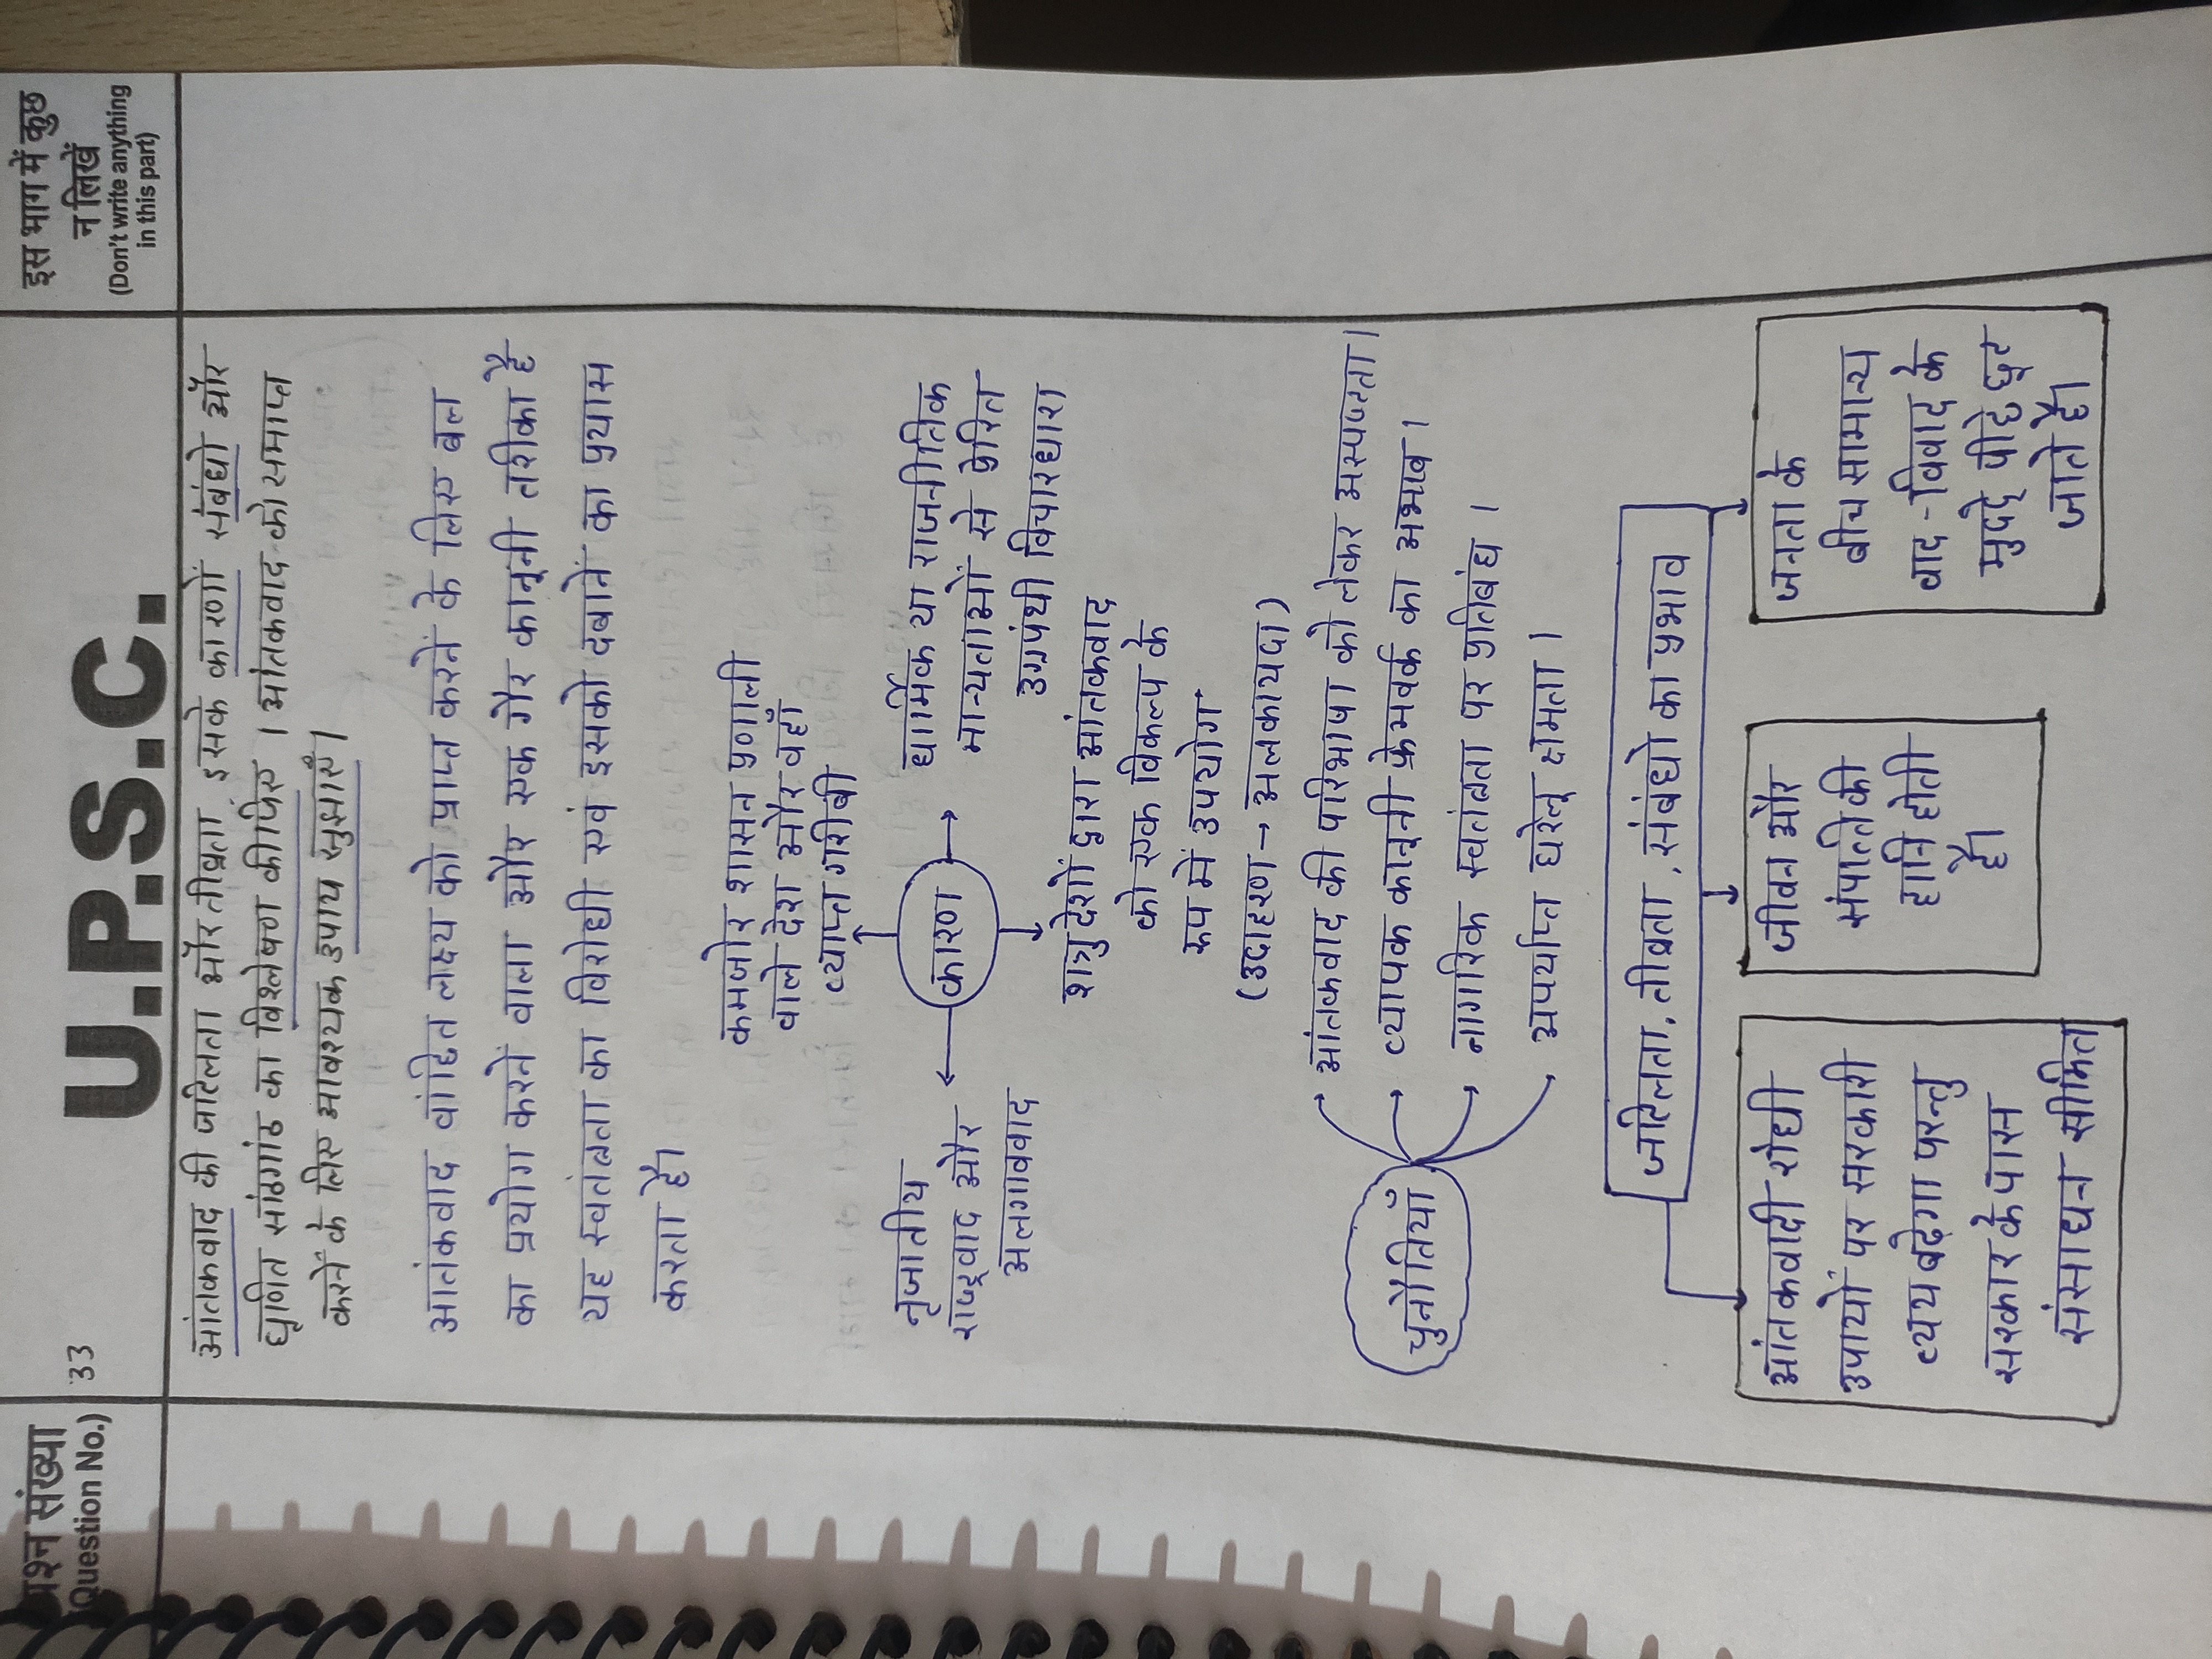 प्रश्न संख्या
(Question No.)
33
U.P.S.C.
इस भाग में कुछ
न लिखें
(Don't write anything
in this part)
आंतकवाद की जटिलता और तीव्रता इसके कारणों संबंधो और
घृणित सांठगांठ का विश्लेषण कीजिए। आंतकवाद को समाप्त
करनें के लिए आवश्यक उपाय सुझाएँ।
आतंकवाद वांछित लक्ष्य को प्राप्त करनें के लिए बल
का प्रयोग करनें वाला और एक गैर कानूनी तरीका है
यह स्वतंत्रता का विरोधी एवं इसको दबानें का प्रयास
करता है।
कमजोर शासन प्रणाली
वाले देश और वहाँ
व्याप्त गरीबी
कारण
नृजातीय
राष्ट्रवाद और
अलगाववाद
धार्मिक या राजनीतिक
मान्यताओं से प्रेरित
उग्रपंथी विचारधारा
शत्रु देशों द्वारा आंतकवाद
को एक विकल्प के
रूप में उपयोग
(उदाहरण → अलकायदा)
चुनौतियाँ
आंतकवाद की परिभाषा को लेकर अस्पष्टता।
व्यापक कानूनी फ्रेमवर्क का अभाव।
नागरिक स्वतंत्रता पर प्रतिबंध।
अपर्याप्त घरेलू क्षमता।
जटिलता, तीव्रता, संबंधो का प्रभाव
आंतकवादी रोधी
उपायों पर सरकारी
व्यय बढ़ेगा परन्तु
सरकार के पास
संसाधन सीमित
जीवन और
संपत्ति की
हानि होती
है।
जनता के
बीच सामान्य
वाद-विवाद के
मुद्दे पीछे छूट
जाते है।